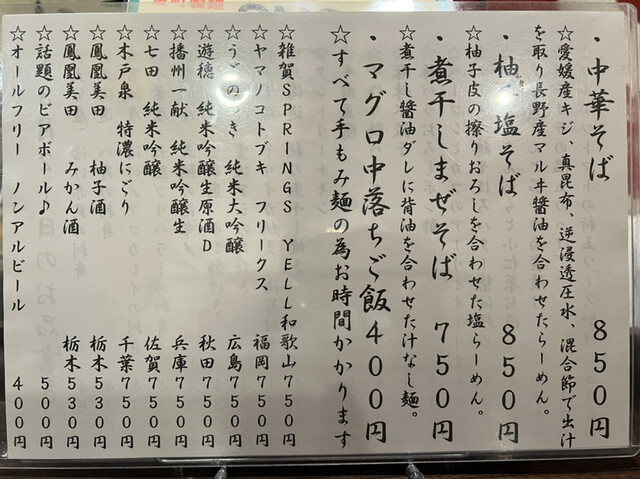 ・中華そば 850円
☆愛媛産キジ、真昆布、逆浸透圧水、混合節で出汁
を取り長野産マルヰ醬油を合わせたらーめん。
・柚子塩そば 850円
☆柚子皮の擦りおろしを合わせた塩らーめん。
・煮干しまぜそば 750円
☆煮干し醤油ダレに背油を合わせた汁なし麺。
・マグロ中落ちご飯400円
☆すべて手もみ麺の為お時間かかります
☆雑賀SPRINGS YELL和歌山750円
☆ヤマノコトブキ フリークス 福岡750円
☆うごのつき 純米大吟醸 広島750円
☆遊穂 純米吟醸生原酒D 秋田750円
☆播州一献 純米吟醸生 兵庫750円
☆七田 純米吟醸 佐賀750円
☆木戸泉 特濃にごり 千葉750円
☆鳳凰美田 柚子酒 栃木530円
☆鳳凰美田 みかん酒 栃木530円
☆話題のビアボール♪ 500円
☆オールフリー ノンアルビール 400円